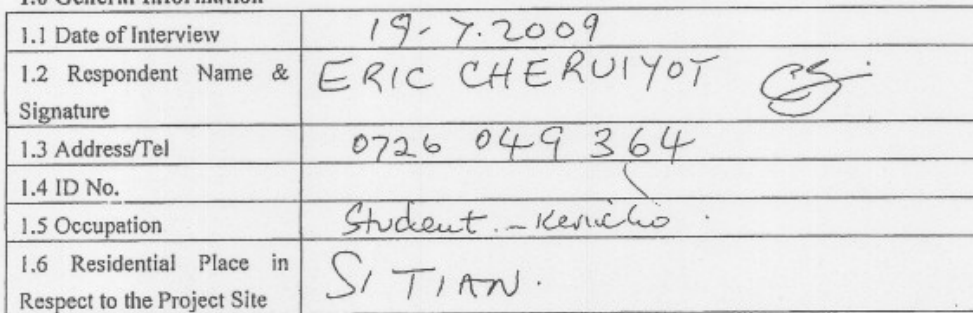 1.0 General Information
1.1 Date of Interview 19-7.2009
1.2 Respondent Name & ERIC CHERUIYOT
Signature
1.3 Address/Tel 0726 049 364
1.4 ID No.
1.5 Occupation Student - Kericho.
1.6 Residential Place in SITIAN.
Respect to the Project Site